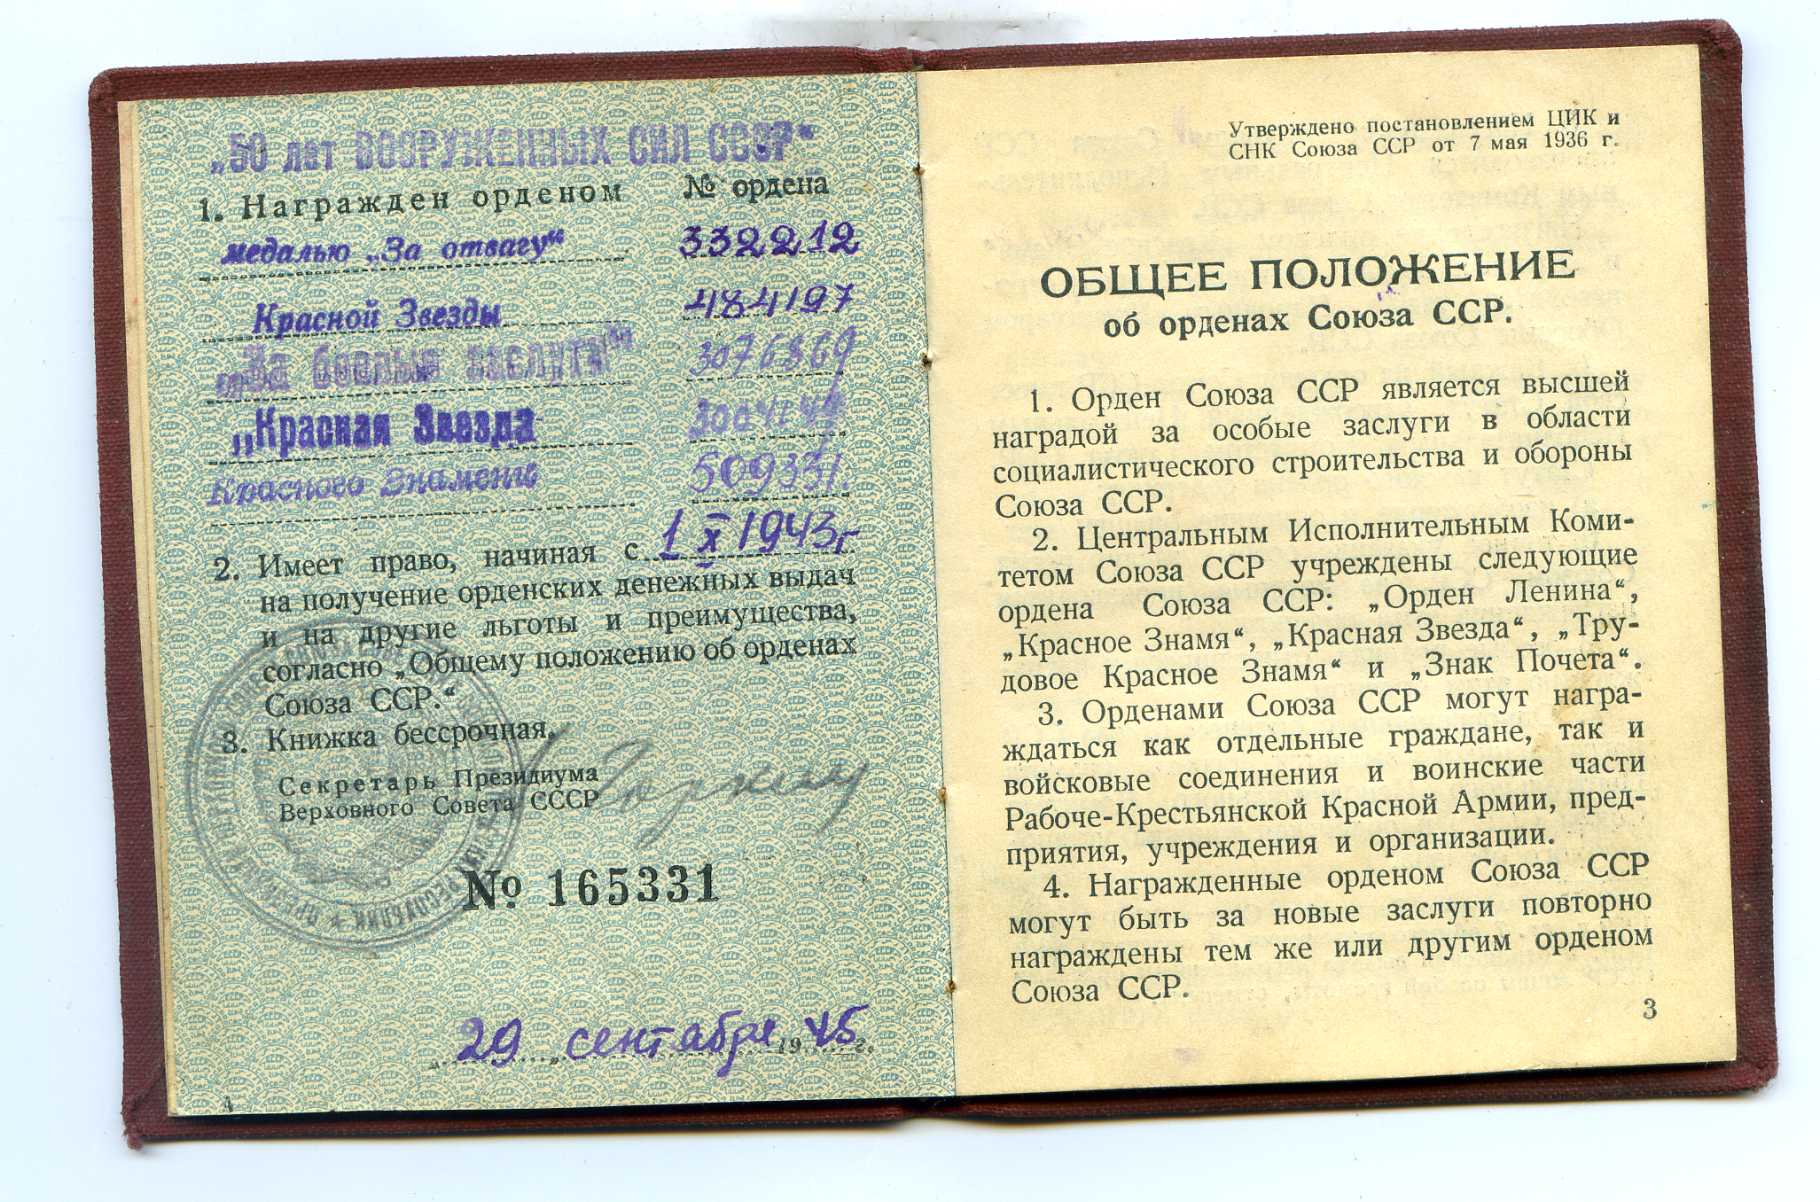 „50 лет ВООРУЖЕННЫХ СИЛ СССР“
1. Награжден орденом № ордена
медалью „За отвагу“ 332212
Красной Звезды 484197
„За боевые заслуги“ 3076869
„Красная Звезда
Красного Знамени 509331.
2. Имеет право, начиная с 1 X 1943г
на получение орденских денежных выдач
и на другие льготы и преимущества,
согласно „Общему положению об орденах
Союза ССР.“
3. Книжка бессрочная.
Секретарь Президиума
Верховного Совета СССР
№ 165331
„29„ сентября 1945 г.
Утверждено постановлением ЦИК и
СНК Союза ССР от 7 мая 1936 г.
ОБЩЕЕ ПОЛОЖЕНИЕ
об орденах Союза ССР.
1. Орден Союза ССР является высшей
наградой за особые заслуги в области
социалистического строительства и обороны
Союза ССР.
2. Центральным Исполнительным Коми-
тетом Союза ССР учреждены следующие
ордена Союза ССР: „Орден Ленина“,
„Красное Знамя“, „Красная Звезда“, „Тру-
довое Красное Знамя“ и „Знак Почета“.
3. Орденами Союза ССР могут награ-
ждаться как отдельные граждане, так и
войсковые соединения и воинские части
Рабоче-Крестьянской Красной Армии, пред-
приятия, учреждения и организации.
4. Награжденные орденом Союза ССР
могут быть за новые заслуги повторно
награждены тем же или другим орденом
Союза ССР.
3